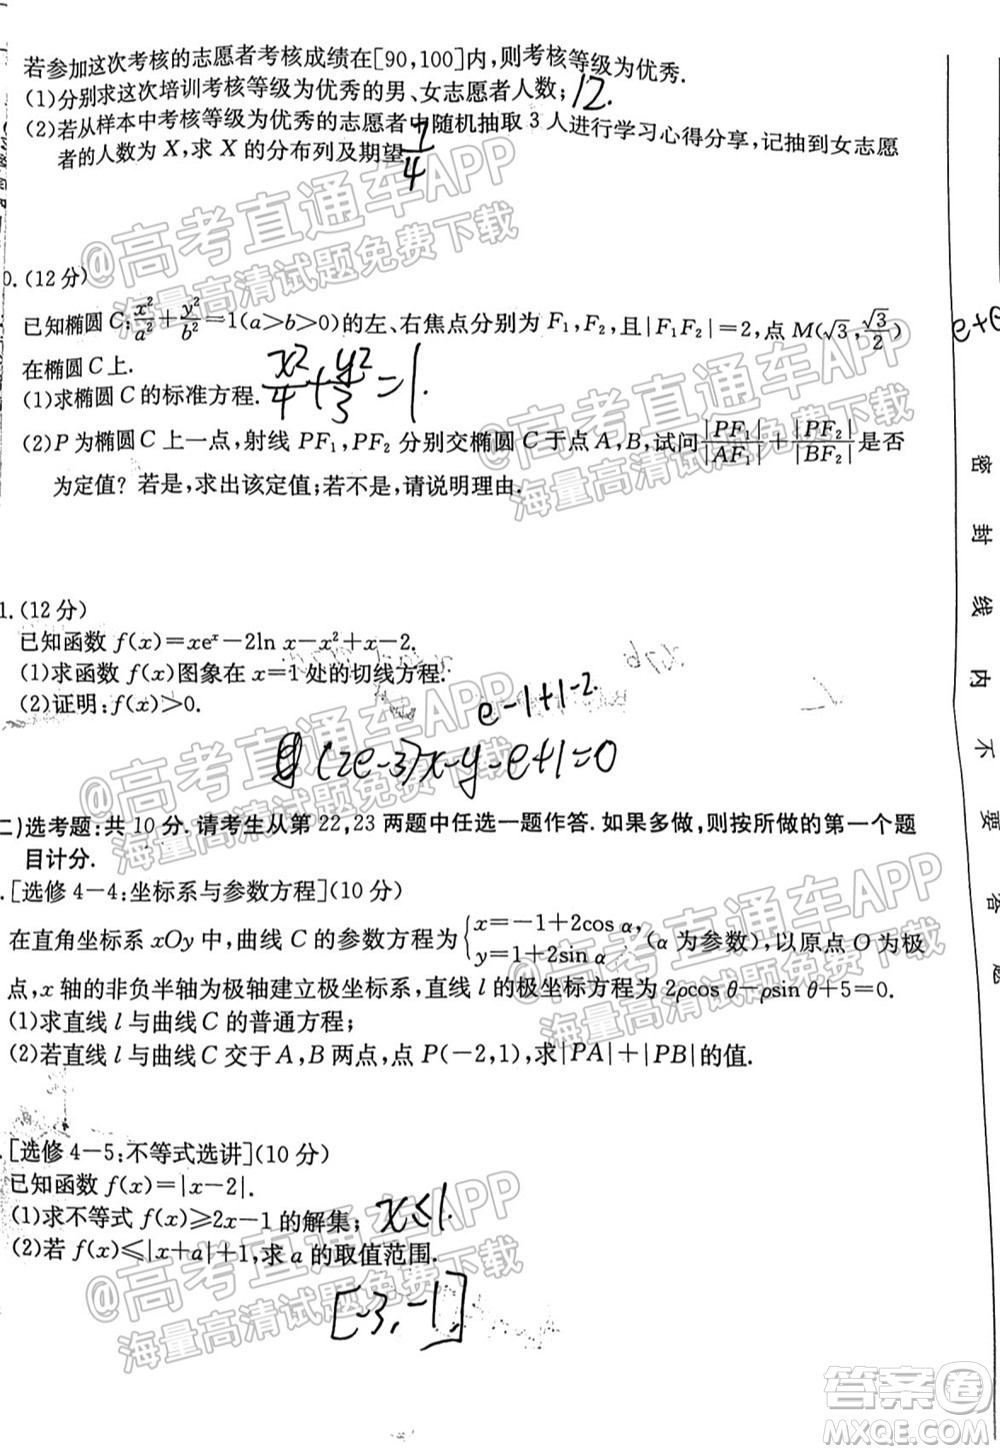 若参加这次考核的志愿者考核成绩在[90,100]内,则考核等级为优秀.
(1)分别求这次培训考核等级为优秀的男、女志愿者人数; 12.
(2)若从样本中考核等级为优秀的志愿者中随机抽取3人进行学习心得分享,记抽到女志愿
者的人数为X,求X的分布列及期望. 7/4
@高考直通车APP
海量高清试题免费下载
0.(12分)
已知椭圆C:x²/a²+y²/b²=1(a>b>0)的左、右焦点分别为F₁,F₂,且|F₁F₂|=2,点M(√3,√3/2)
在椭圆C上.
(1)求椭圆C的标准方程. x²/4+y²/3=1.
(2)P为椭圆C上一点,射线PF₁,PF₂分别交椭圆C于点A,B,试问|PF₁|/|AF₁|+|PF₂|/|BF₂|是否
为定值?若是,求出该定值;若不是,请说明理由.
@高考直通车APP
海量高清试题免费下载
1.(12分)
已知函数f(x)=xeˣ-2ln x-x²+x-2.
(1)求函数f(x)图象在x=1处的切线方程.
(2)证明:f(x)>0.
e-1+1-2.
(2e-3)x-y-e+1=0
@高考直通车APP
海量高清试题免费下载
二)选考题:共10分.请考生从第22,23两题中任选一题作答.如果多做,则按所做的第一个题
目计分.
.[选修4-4:坐标系与参数方程](10分)
在直角坐标系xOy中,曲线C的参数方程为{x=-1+2cos α, y=1+2sin α (α为参数),以原点O为极
点,x轴的非负半轴为极轴建立极坐标系,直线l的极坐标方程为2ρcos θ-ρsin θ+5=0.
(1)求直线l与曲线C的普通方程;
(2)若直线l与曲线C交于A,B两点,点P(-2,1),求|PA|+|PB|的值.
@高考直通车APP
海量高清试题免费下载
.[选修4-5:不等式选讲](10分)
已知函数f(x)=|x-2|.
(1)求不等式f(x)≥2x-1的解集; x≤1.
(2)若f(x)≤|x+a|+1,求a的取值范围.
[-3,-1]
@高考直通车APP
海量高清试题免费下载
密封线内不要答题
答案卷
MXQE.COM